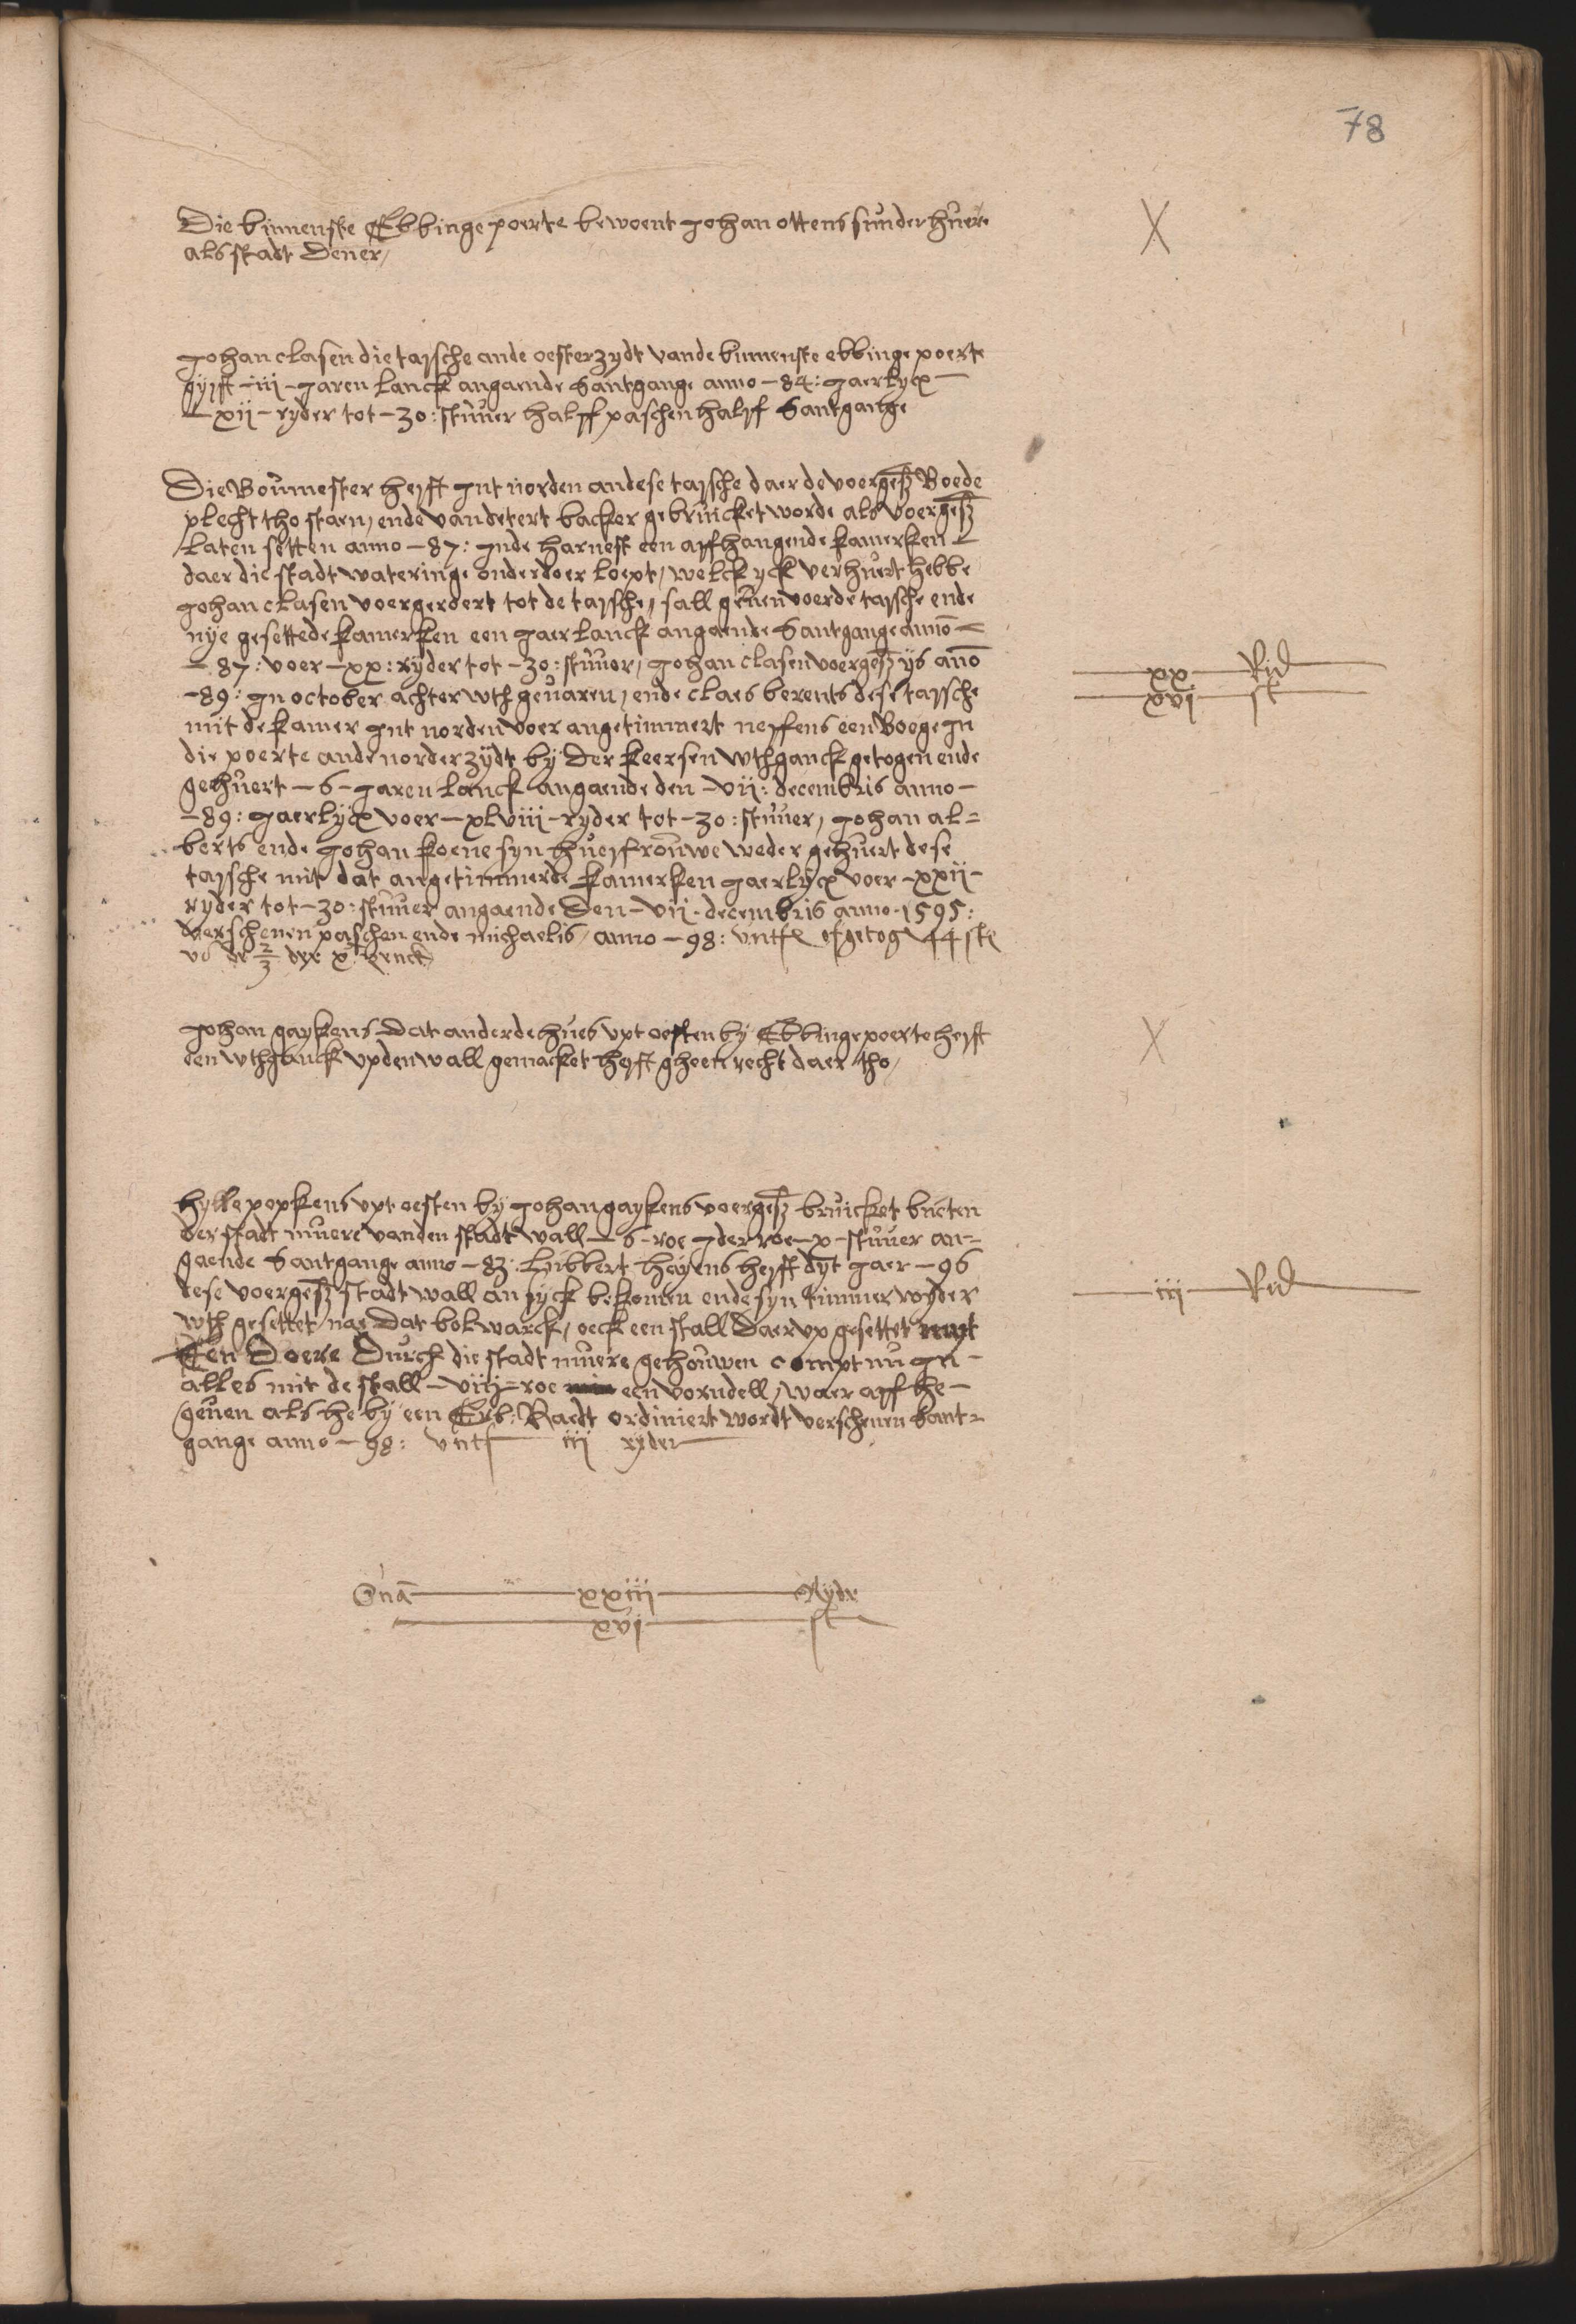 78
Die binnenste Ebbinge poerte bewoent Johan ottens sunder huere
als stadt dener,
X
Johan clasen die taissche ande oesterzydt vande binnenste ebbinge poerte
gyfft - iii - Jaren lanck angaende Santgange anno - 84: Jaerlycx -
- xii - ryder tot - 30: stuuer halff paschen halff Santgange
Die Boumester heifft Int norden an dese taissche daer de voergesz Boede
plecht tho staen, ende van de backer gebruicket worde als voergesz
laten setten anno - 87: Inde harnest een affhangende kamerken -
daer die stadt wateringe onderdoer loept, welck yck verhuert hebbe
Johan clasen voergeroert tot de taissche, sall geuen voer de taissche ende
nye gesettede kamerken een Jaer lanck angaende Santgange anno -
- 87: voer - xx: ryder tot - 30: stuuer, Johan clasen voergesz ys ano
- 89: In october achter wth geuaren, ende claes berents dese taissche
mit de kamer Int norden voer angetimmert neffens een Boege In
die poerte ande norder zydt by der keersen wthganck getogen ende
gehuert - 6 - Jaren lanck angaende den - vii: decembris anno -
- 89: Jaerlycx voer - xlviii - ryder tot - 30: stuuer, Johan al=
berts ende Johan koene syn huisfrouwe weder gehuert dese
taissche mit dat angetimmerde kamerken Jaerlycx voer - xxii -
ryder tot - 30: stuuer angaende den - vii - decembris anno - 1595:
verschenen paschen ende michaelis, anno - 98: untf ofgetog 44 st
2/3 der
xx Rid
xvi st
Johan gaykens dat anderde hues upt oesten by Ebbinge poerte heifft
een wthganck up den wall gemacket heifft gheen recht daer tho,
X
hylle popkens upt oesten by Johan gaykens voergesz bruicket bueten
der stadt muere vanden stadt wall - 6 - roe Jder roe - x - stuuer an=
gaende Santgange anno - 83: Lubbert hayens heifft dyt Jaer - 96
dese voergesz stadt wall an syck bekomen ende syn timmer wyder
wth gesettet nae dat bolwarck, oeck een stall daer up gesettet myt
Een doere durch die stadt muere gehouwen compt nu In -
alles mit de stall - viii = roe een vorndell, waer aff he -
geuen als he by een Erb: Raedt ordiniert wordt verschenen Sant=
gange anno - 98: untf iii ryder
iii Rid
Sma xxiii Ryder
xvi st